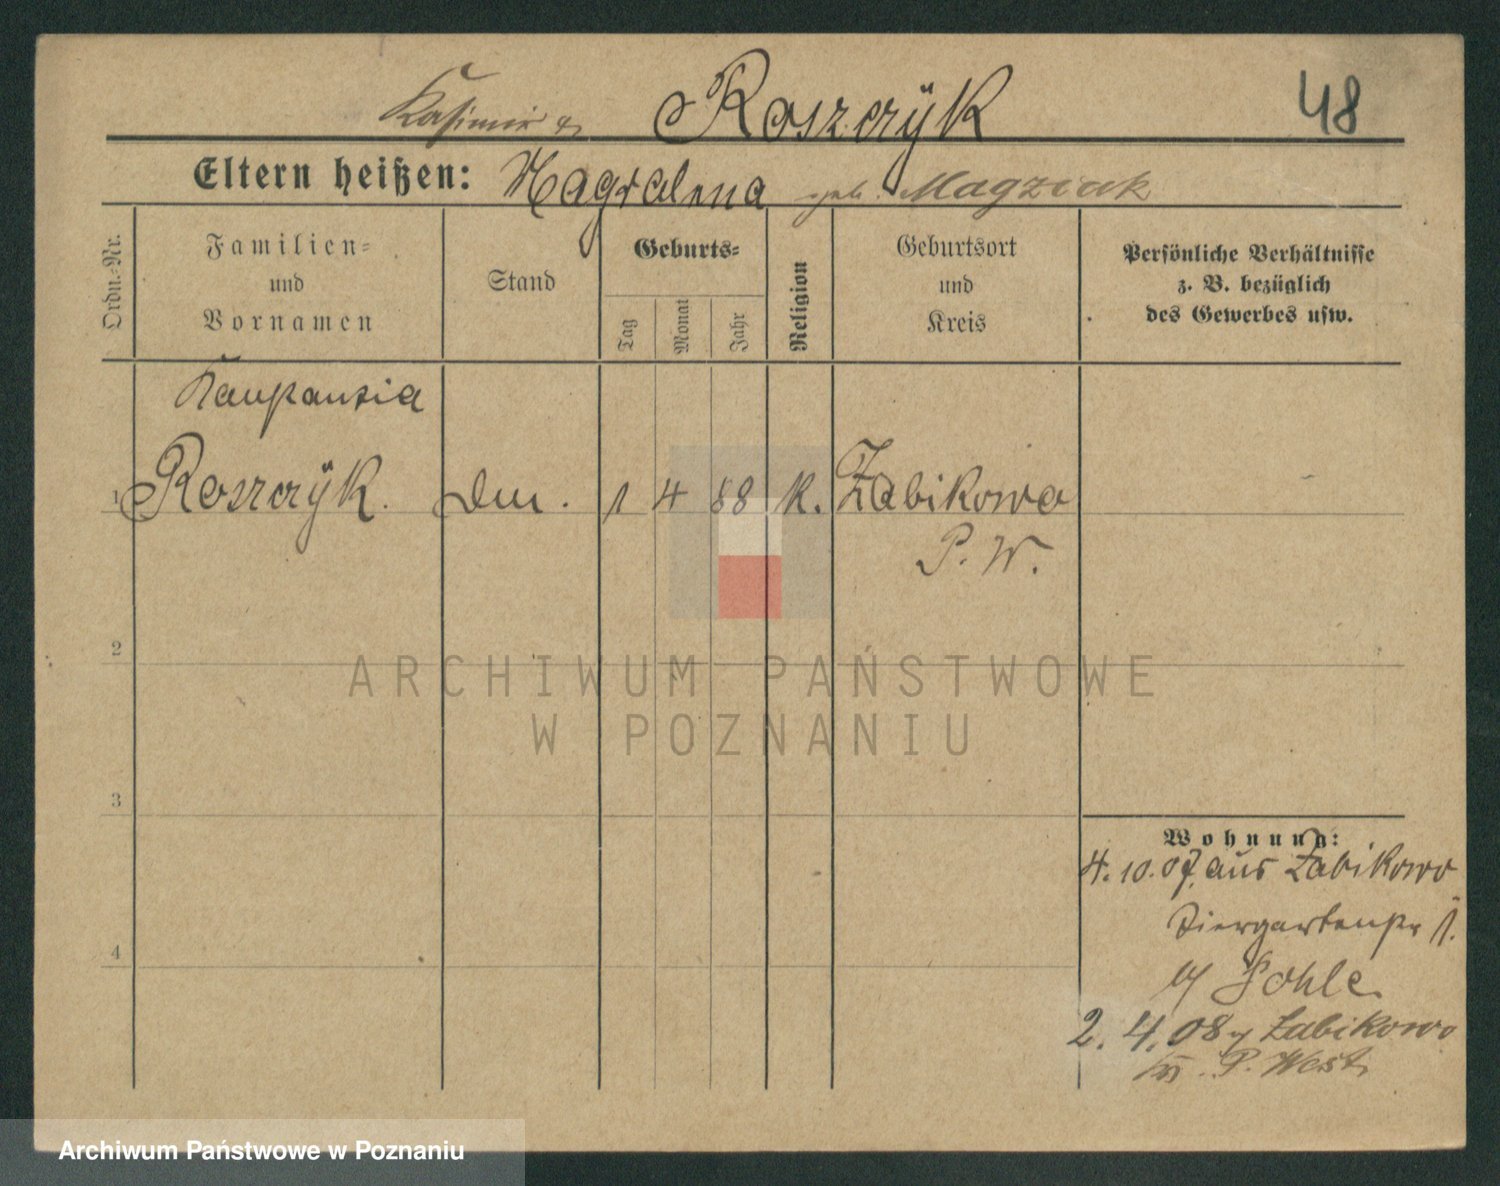 Kasimir u. Roszczÿk 48
Eltern heißen: Magdalena geb. Magziak
Ordn.-Nr.
Familien-
und
Vornamen
Stand
Geburts-
Tag
Monat
Jahr
Religion
Geburtsort
und
Kreis
Persönliche Verhältnisse
z. B. bezüglich
des Gewerbes usw.
1 Roszczÿk. 1 4 88 K. Zabikowo
P. W.
2
ARCHIWUM PAŃSTWOWE
W POZNANIU
3
Wohnung:
4. 10. 07. aus Zabikowo
Tiergartenstr 1.
b/ Sohle
4
2. 4. 08 n/ Zabikowo
Kr. P. West.
Archiwum Państwowe w Poznaniu